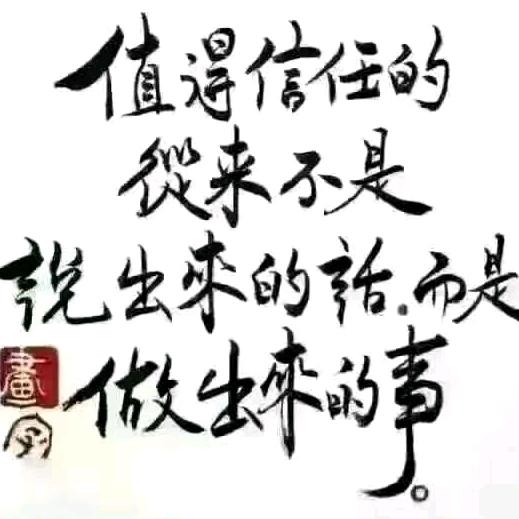 值得信任的
從来不是
說出來的話。而是
做出來的事。
畫字